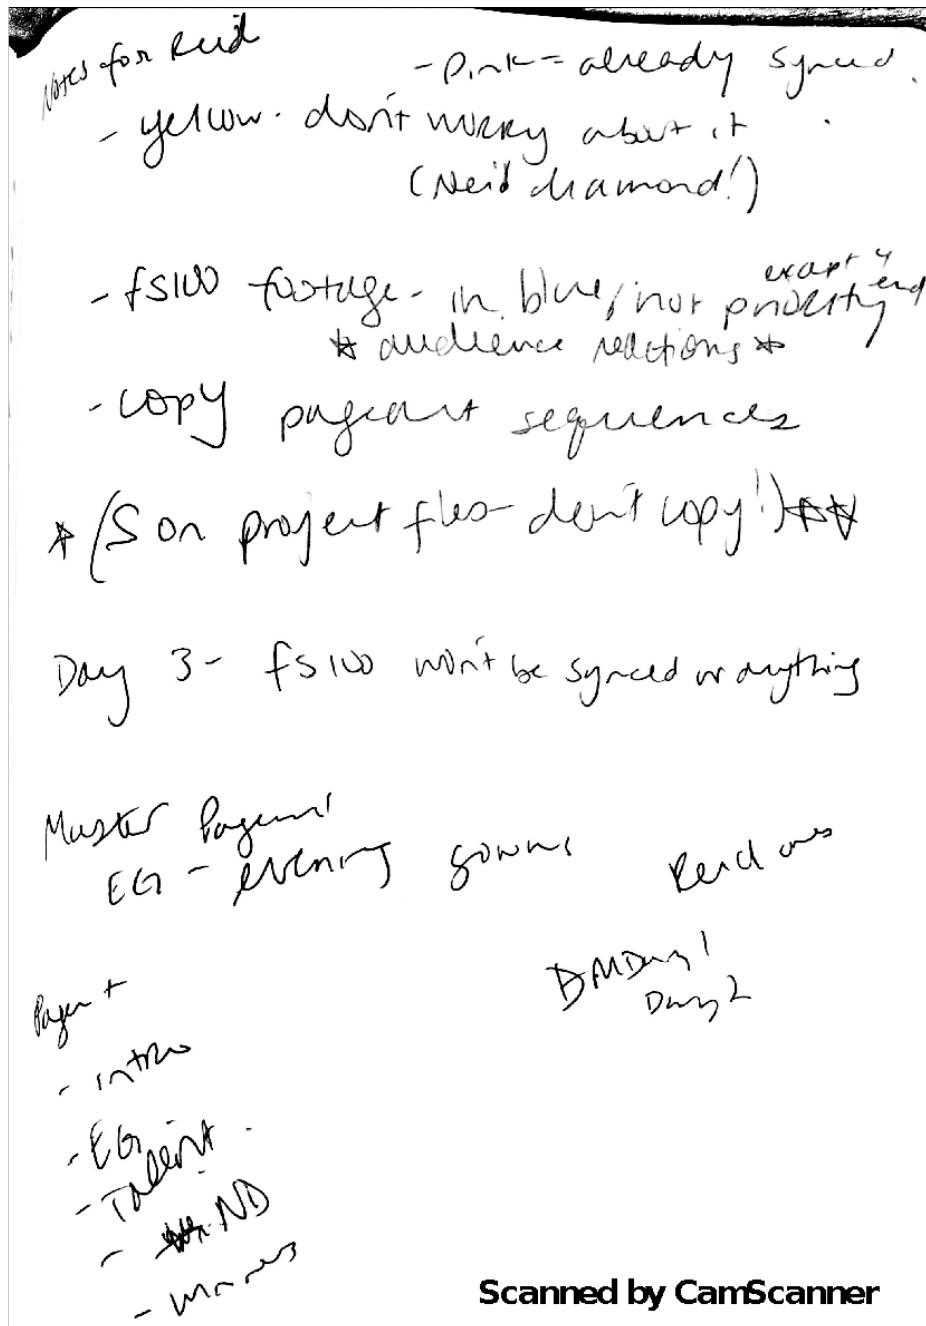 Notes for Reid
- Pink = already synced.
- yellow - don't worry about it
(Neil diamond!)
- fs100 footage - in blue, not priority except 4 end
* audience reactions *
- copy pageant sequences
* (S on project files - don't copy!) **
Day 3 - fs100 won't be synced or anything
Master Pageant
EG - evening gowns
Day 1
Day 2
Pageant
- intro
- EG
- Talent
- ND
- winners
Scanned by CamScanner